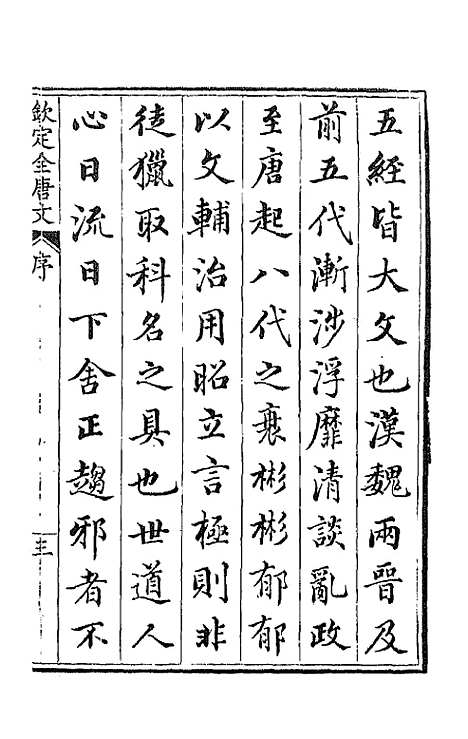 五經皆大文也漢魏兩晉及
前五代漸涉浮靡清談亂政
至唐起八代之衰彬彬郁郁
以文輔治用昭立言極則非
徒獵取科名之具也世道人
心日流日下舍正趨邪者不
欽定全唐文
序